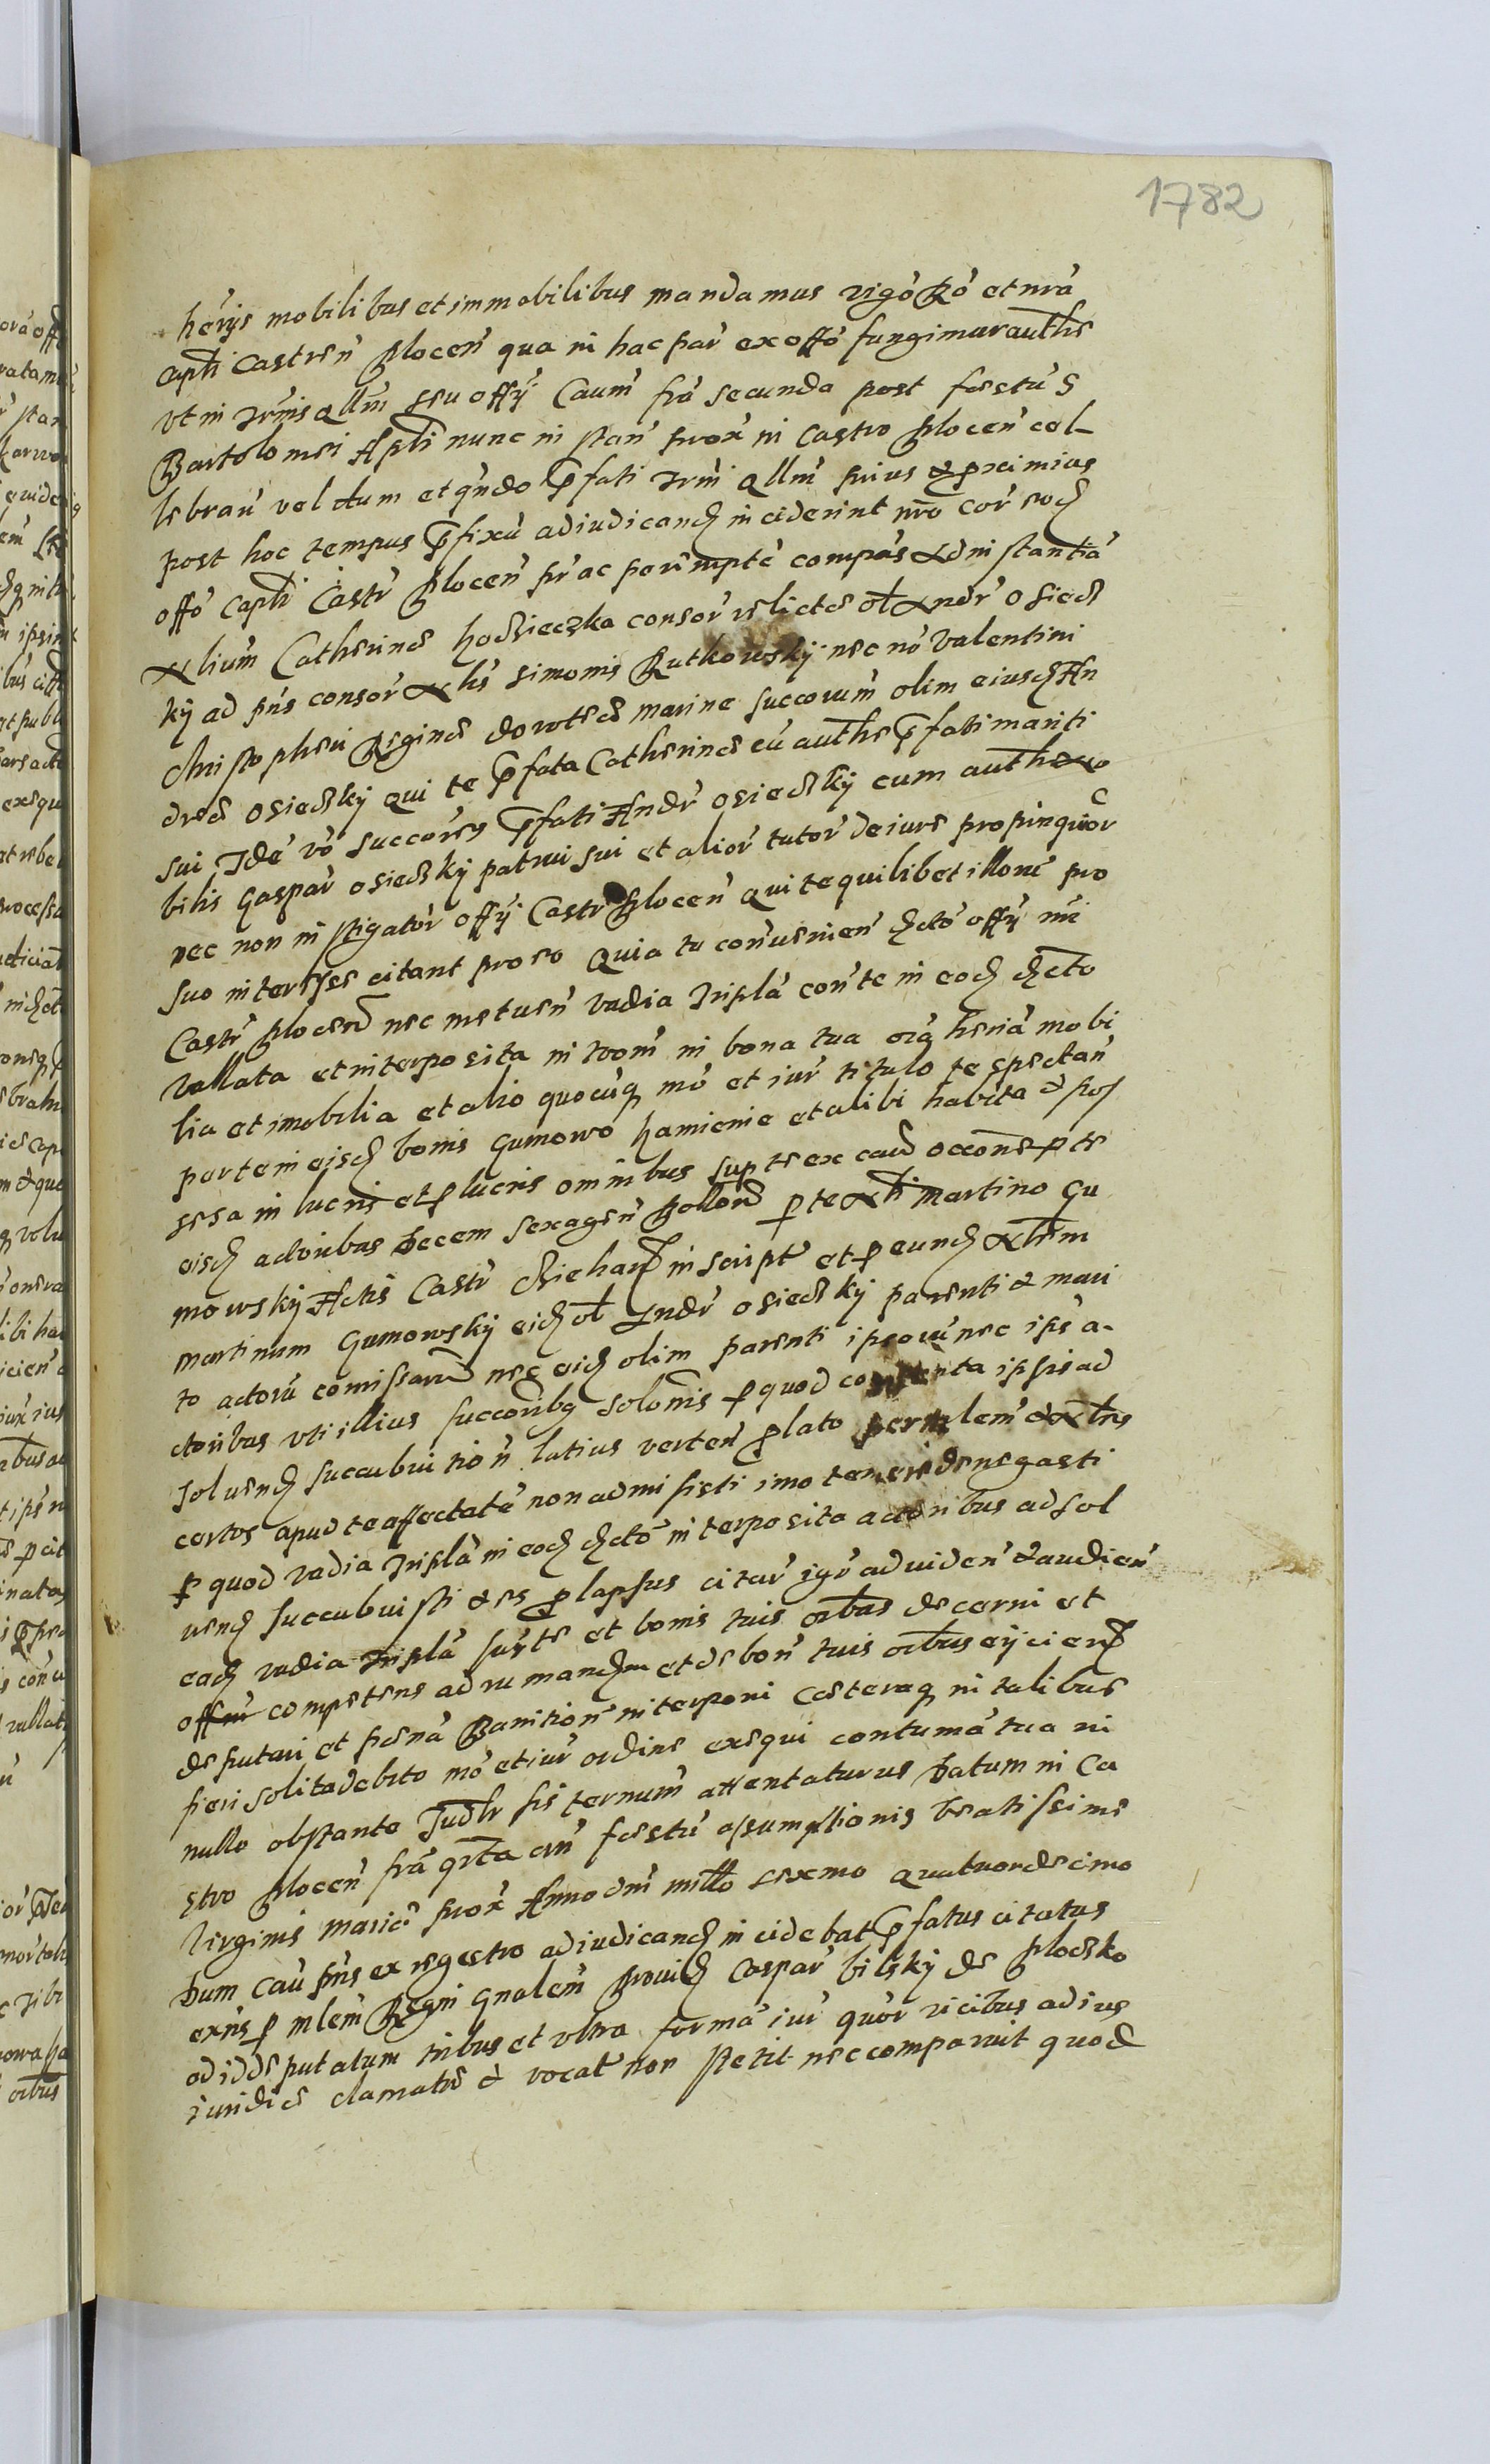 1782
herijs mobilibus et immobilibus mandamus rigo Ro et nra
Capti Castren Plocen qua in hac par ex offo fungimur authe
ut in Trmis qllm seu offij Caum fra secunda post festu S
Bartolomei Apli nunc in stan prox in Castro Plocen cel-
lebran vel dum et qndo pfati Trmi qllm prius & pximius
post hoc tempus pfixu adiudicand inciderint nro cor eod
offo capti Castr Plocen pr ac perempte compas Ad instantia
Nlium Catherine hodzieczka consor relicte ol Andr Osieds
kij ad pns consor Nlis Simonis Rutkowskij nec no Valentini
Christopheri Regine Dorothee Marine succorum olim eiusd An
dree Osiedskij qui te pfata Catherine cu authe pfati mariti
sui Ide vo succores pfati Andr Osiedskij cum authe No
bilis Gaspar Osiedskij patrui sui et alior tutor de iure propinquior
nec non instigator offij Castr Plocen qui te quilibet illorum pro
suo interesse citant pro eo Quia tu convenien dcto offij nri
Castr Plocen nec metuen vadia tripla con te in eod dcto
vallata et interposita in room in bona tua oia heria mobi
lia et imobilia et alio quocuq mo et iur titulo te spectan
parte in eisd bonis Gumowo hamienie et alibi habita & pos
sesa in lucris et p lucris omnibus sup te ex cau occone p te
eisd actoribus decem sexagen pollon p te Nli Martino Gu
mowskij Actis Castr Ciechan inscript et p eund Nlem
Martinum Gumowskij eid ol Andr Osiedskij parenti & mari
to actoru comissaru nec eid olim parenti ipsorum nec ips a-
ctoribus uti illius succoribq solonis p quod contenta ipsis ad
soluend succubuition latius verten plato per mlem & Nles
certos apud te affectate non admisisti imo temere denegasti
p quod vadia tripla in eod dcto interposita actoribus ad sol
uend succubuisti & es plapsus citar igr ad viden & audien
ead vadia tripla sup te et bonis tuis oibus decerni et
offm competens ad rumandm et de bon tuis oibus eijciend
deputari et pena Banition interponi caeteraq in talibus
fieri solita debito mo et iur ordine exequi contuma tua in
nullo obstante Judlr sis ternum attentaturus Datum in Ca
stro Plocen fra qrta an festu assumptionis beatissime
Virginis Marie prox Anno dni millo sexmo quatuordecimo
Dum cau pns ex regestro adiudicand incidebat pfatus citatus
exns p mlem Regni gnalem Provid Caspar Bilskij de Plodsko
ad id deputatum tribus et ultra forma iur quor vicibus ad ius
iuridice clamatus & vocat non stetit nec comparuit quod